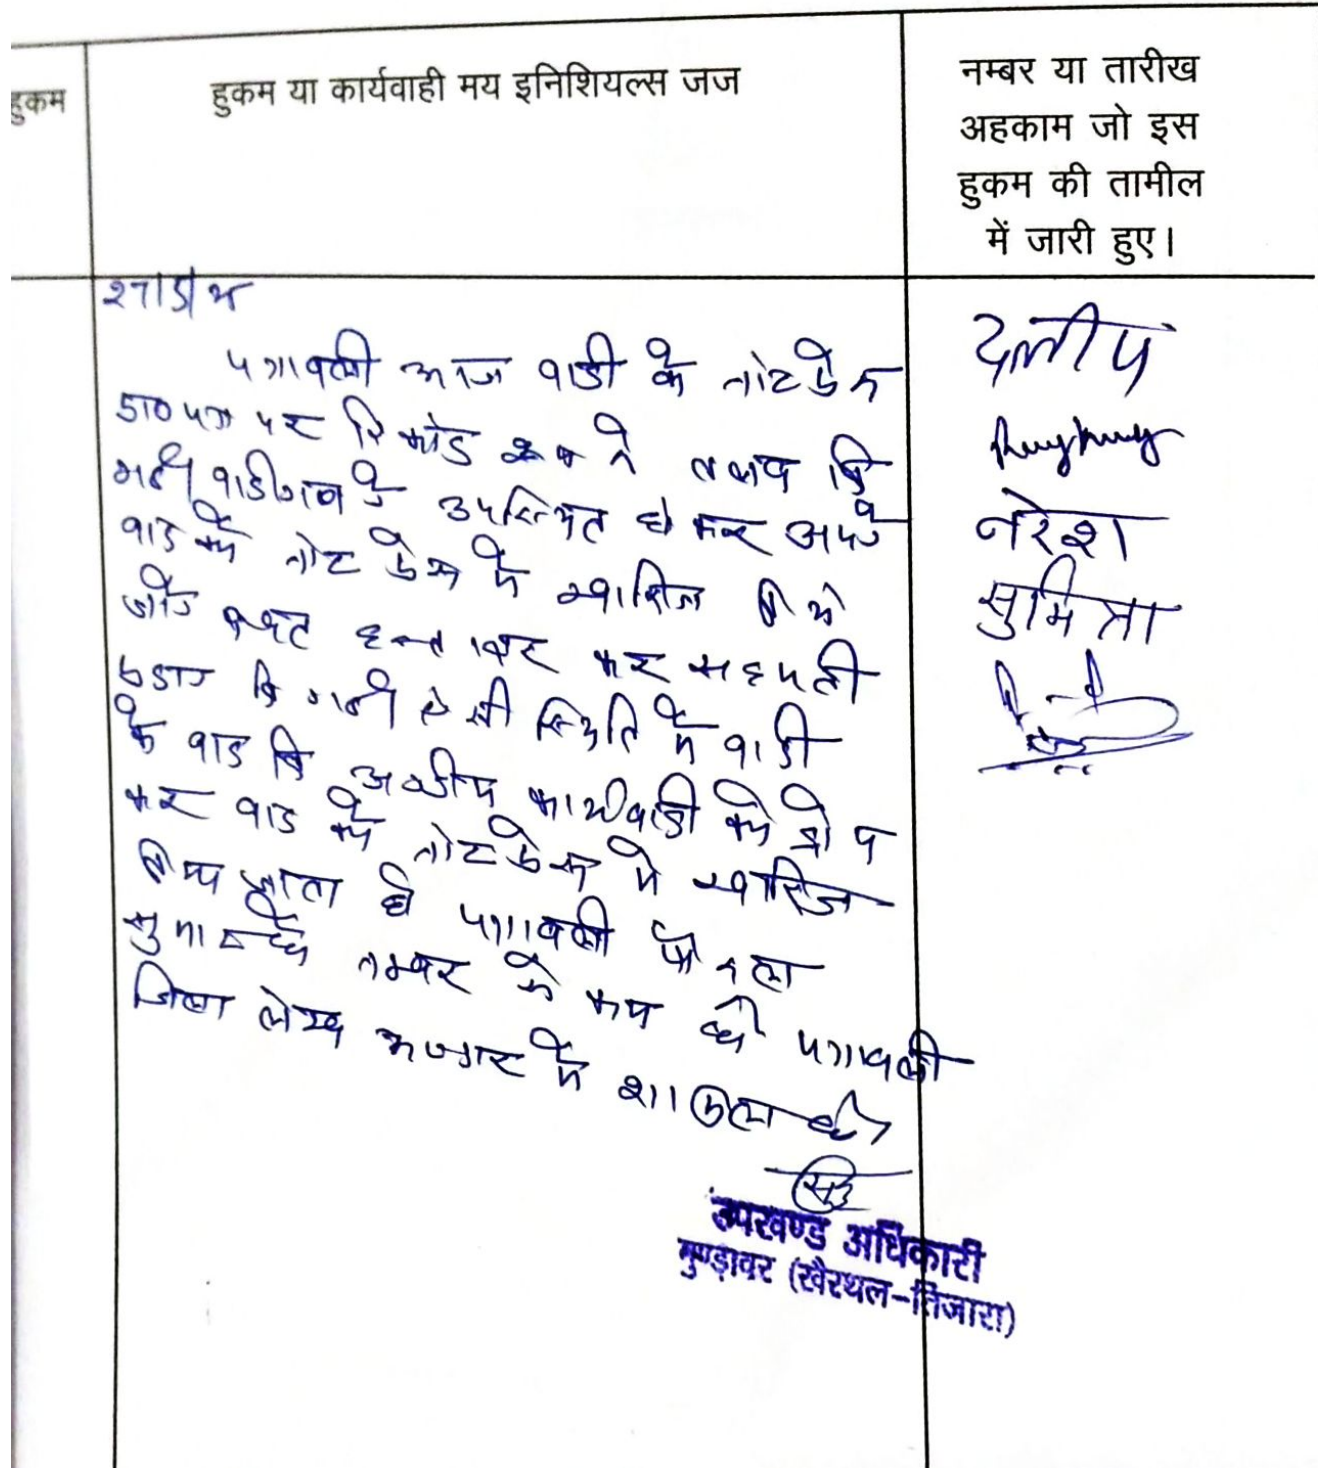 हुकम
हुकम या कार्यवाही मय इनिशियल्स जज
नम्बर या तारीख
अहकाम जो इस
हुकम की तामील
में जारी हुए।
पत्रावली आज वादी के नोट प्रेस
प्रा0 पत्र पर रिकोर्ड रूम से तलब कि
गई वादीगण ने उपस्थित होकर अपने
वाद को नोट प्रेस में खारिज किये
जाने हस्ताक्षर कर सहमती
प्रदान कि गई ऐसी स्थिति में वादी
के वाद कि अग्रीम कार्यवाही को ड्रोप
कर वाद को नोट प्रेस में खारिज
किया जाता है पत्रावली फैसला
सुमार होकर नम्बर से कम हो पत्रावली
जिला लेख भण्डार में दाखिल हो।
उपखण्ड अधिकारी
मुण्ड़ावर (खैरथल-तिजारा)
दलीप
नरेश
सुमित्रा